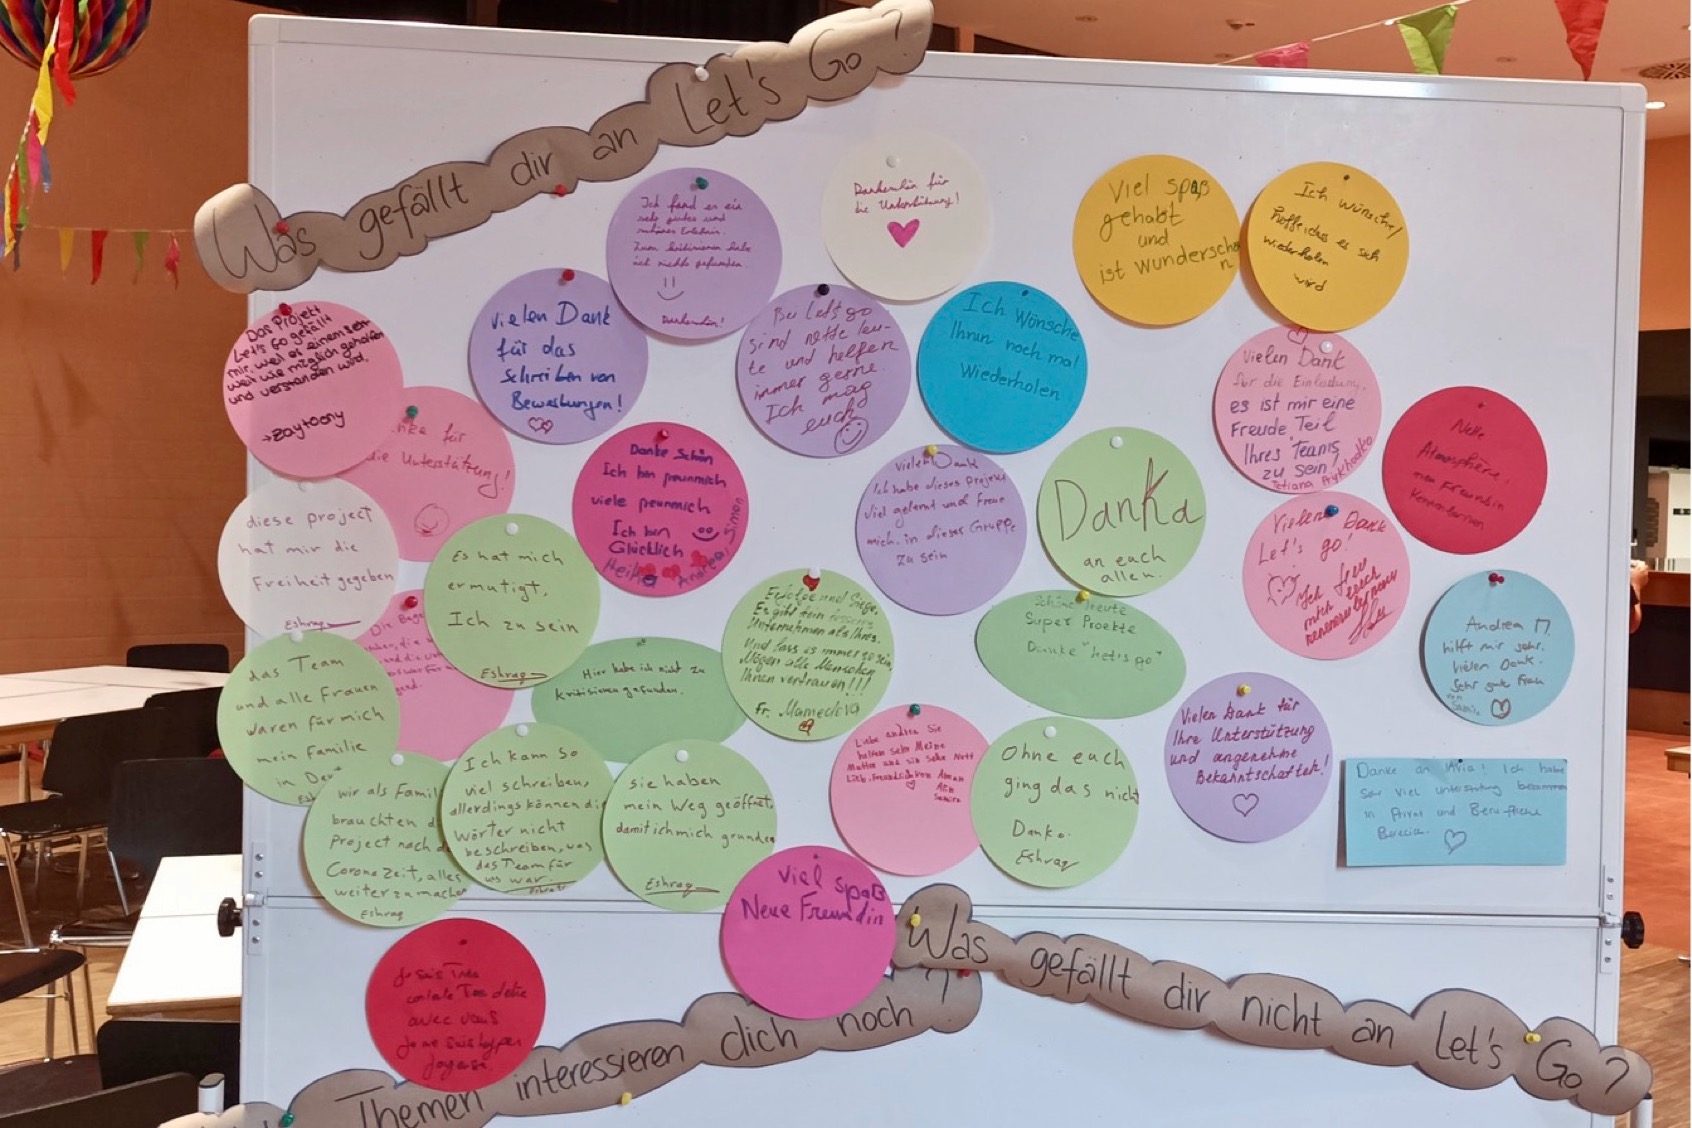 Was gefällt dir an Let's Go?
Ich fand es ein
sehr gutes und
schönes Erlebnis.
Zum kritisieren habe
ich nichts gefunden.
Dankeschön für
die Unterstützung!
Viel spaß
gehabt
und
ist wunderschö
n
Ich wünsche/
hoffe, dass es sich
wiederholen
wird
Das Projekt
Let's Go gefällt
mir, weil es einem sehr
weit wie möglich geholfen
und verstanden wird.
→ zaytoony
vielen Dank
für das
Schreiben von
Bewerbungen!
Bei Let's go
sind nette leu-
te und helfen
immer gerne.
Ich mag
euch
Ich Wünsche
Ihnen noch mal
Wiederholen
Vielen Dank
für die Einladung.
es ist mir eine
Freude Teil
Ihres Teams
zu sein
Nette
Atmosphäre,
neu Freundin
die Unterstützung!
Danke Schön
Ich bin
viele
Ich bin
Glücklich
Heike Andrea, Simon
Vielen Dank
Ich habe dieses Projekt
viel gelernt und freue
mich, in dieses Gruppe
zu sein
Danka
an euch
allen.
Vielen Dank
Let's go!
Ich freu
mich euch
diese project
hat mir die
Freiheit gegeben
Eshrag
Es hat mich
ermutigt,
Ich zu sein
Eshrag
Erfolge und Siege,
Es gibt kein besseres
Unternehmen als Ihres.
Und lass es immer so sein,
Mögen alle Menschen
Ihnen vertrauen!!!
Fr. Mamedova
Schöne heute
Super Proekte
Danke "let's go"
Andrea M.
hilft mir sehr.
Vielen Dank.
Sehr gute Frau
von
Hier habe ich nicht zu
kritisieren gefunden.
das Team
und alle Frauen
waren für mich
mein Familie
in Deu
Vielen Dank für
Ihre Unterstützung
und angenehme
Bekanntschaften!
Liebe andrea Sie
helfen sehr Meine
Mutter und sin sehr Nett
Ohne euch
ging das nicht
Danke.
Eshrag
Danke an Alia! Ich habe
sehr viel unterstützung bekommen
in Privat und Berufliche
Bereich.
wir als Famil
brauchten d
Project nach d
Coronazeit, alles
weiter zu mache
Eshrag
Ich kann so
viel schreiben,
allerdings können die
wörter nicht
beschreiben, was
das Team für
uns war.
sie haben
mein Weg geöffnet,
damit ich mich gründen
Eshrag
Viel spaß
Neue Freundin
Je suis Très
contente
avec vous
Je me suis
Was gefällt dir nicht an Let's Go?
Themen interessieren dich noch?